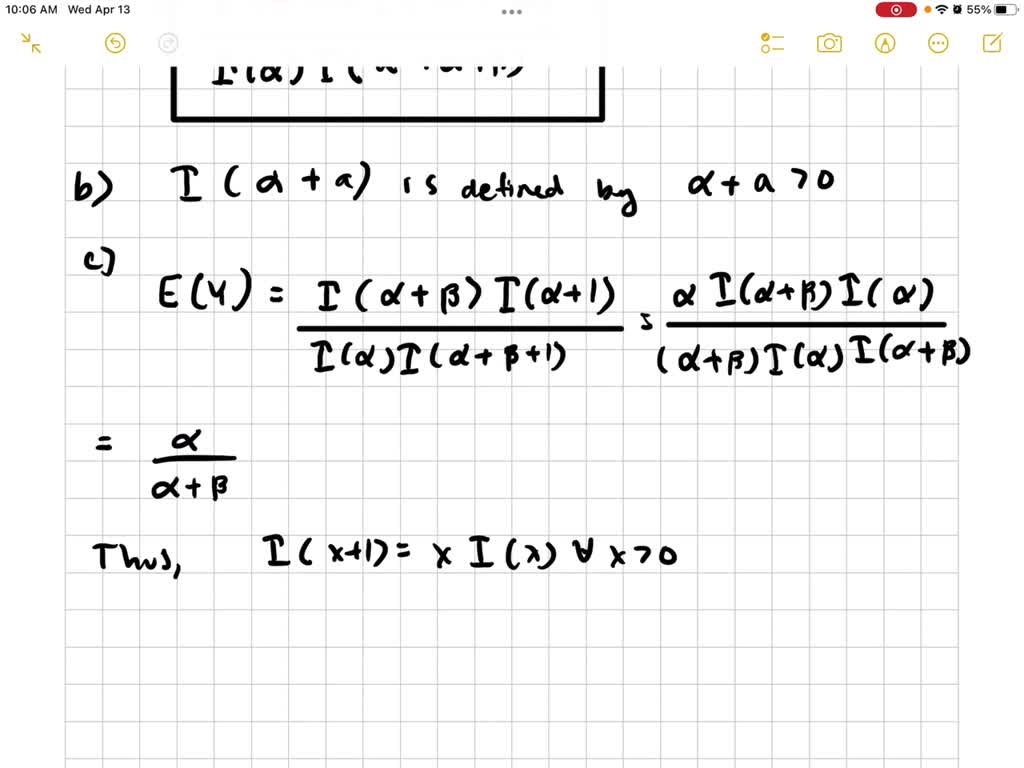 10:06 AM Wed Apr 13
55%
b) I (α + a) is defined by α + a > 0
c)
E(Y) = I (α + β) I(α+1) / I(α) I(α + β + 1) = α I(α+β) I(α) / (α+β) I(α) I(α+β)
= α / α + β
Thus, I (x+1) = x I (x) ∀ x > 0